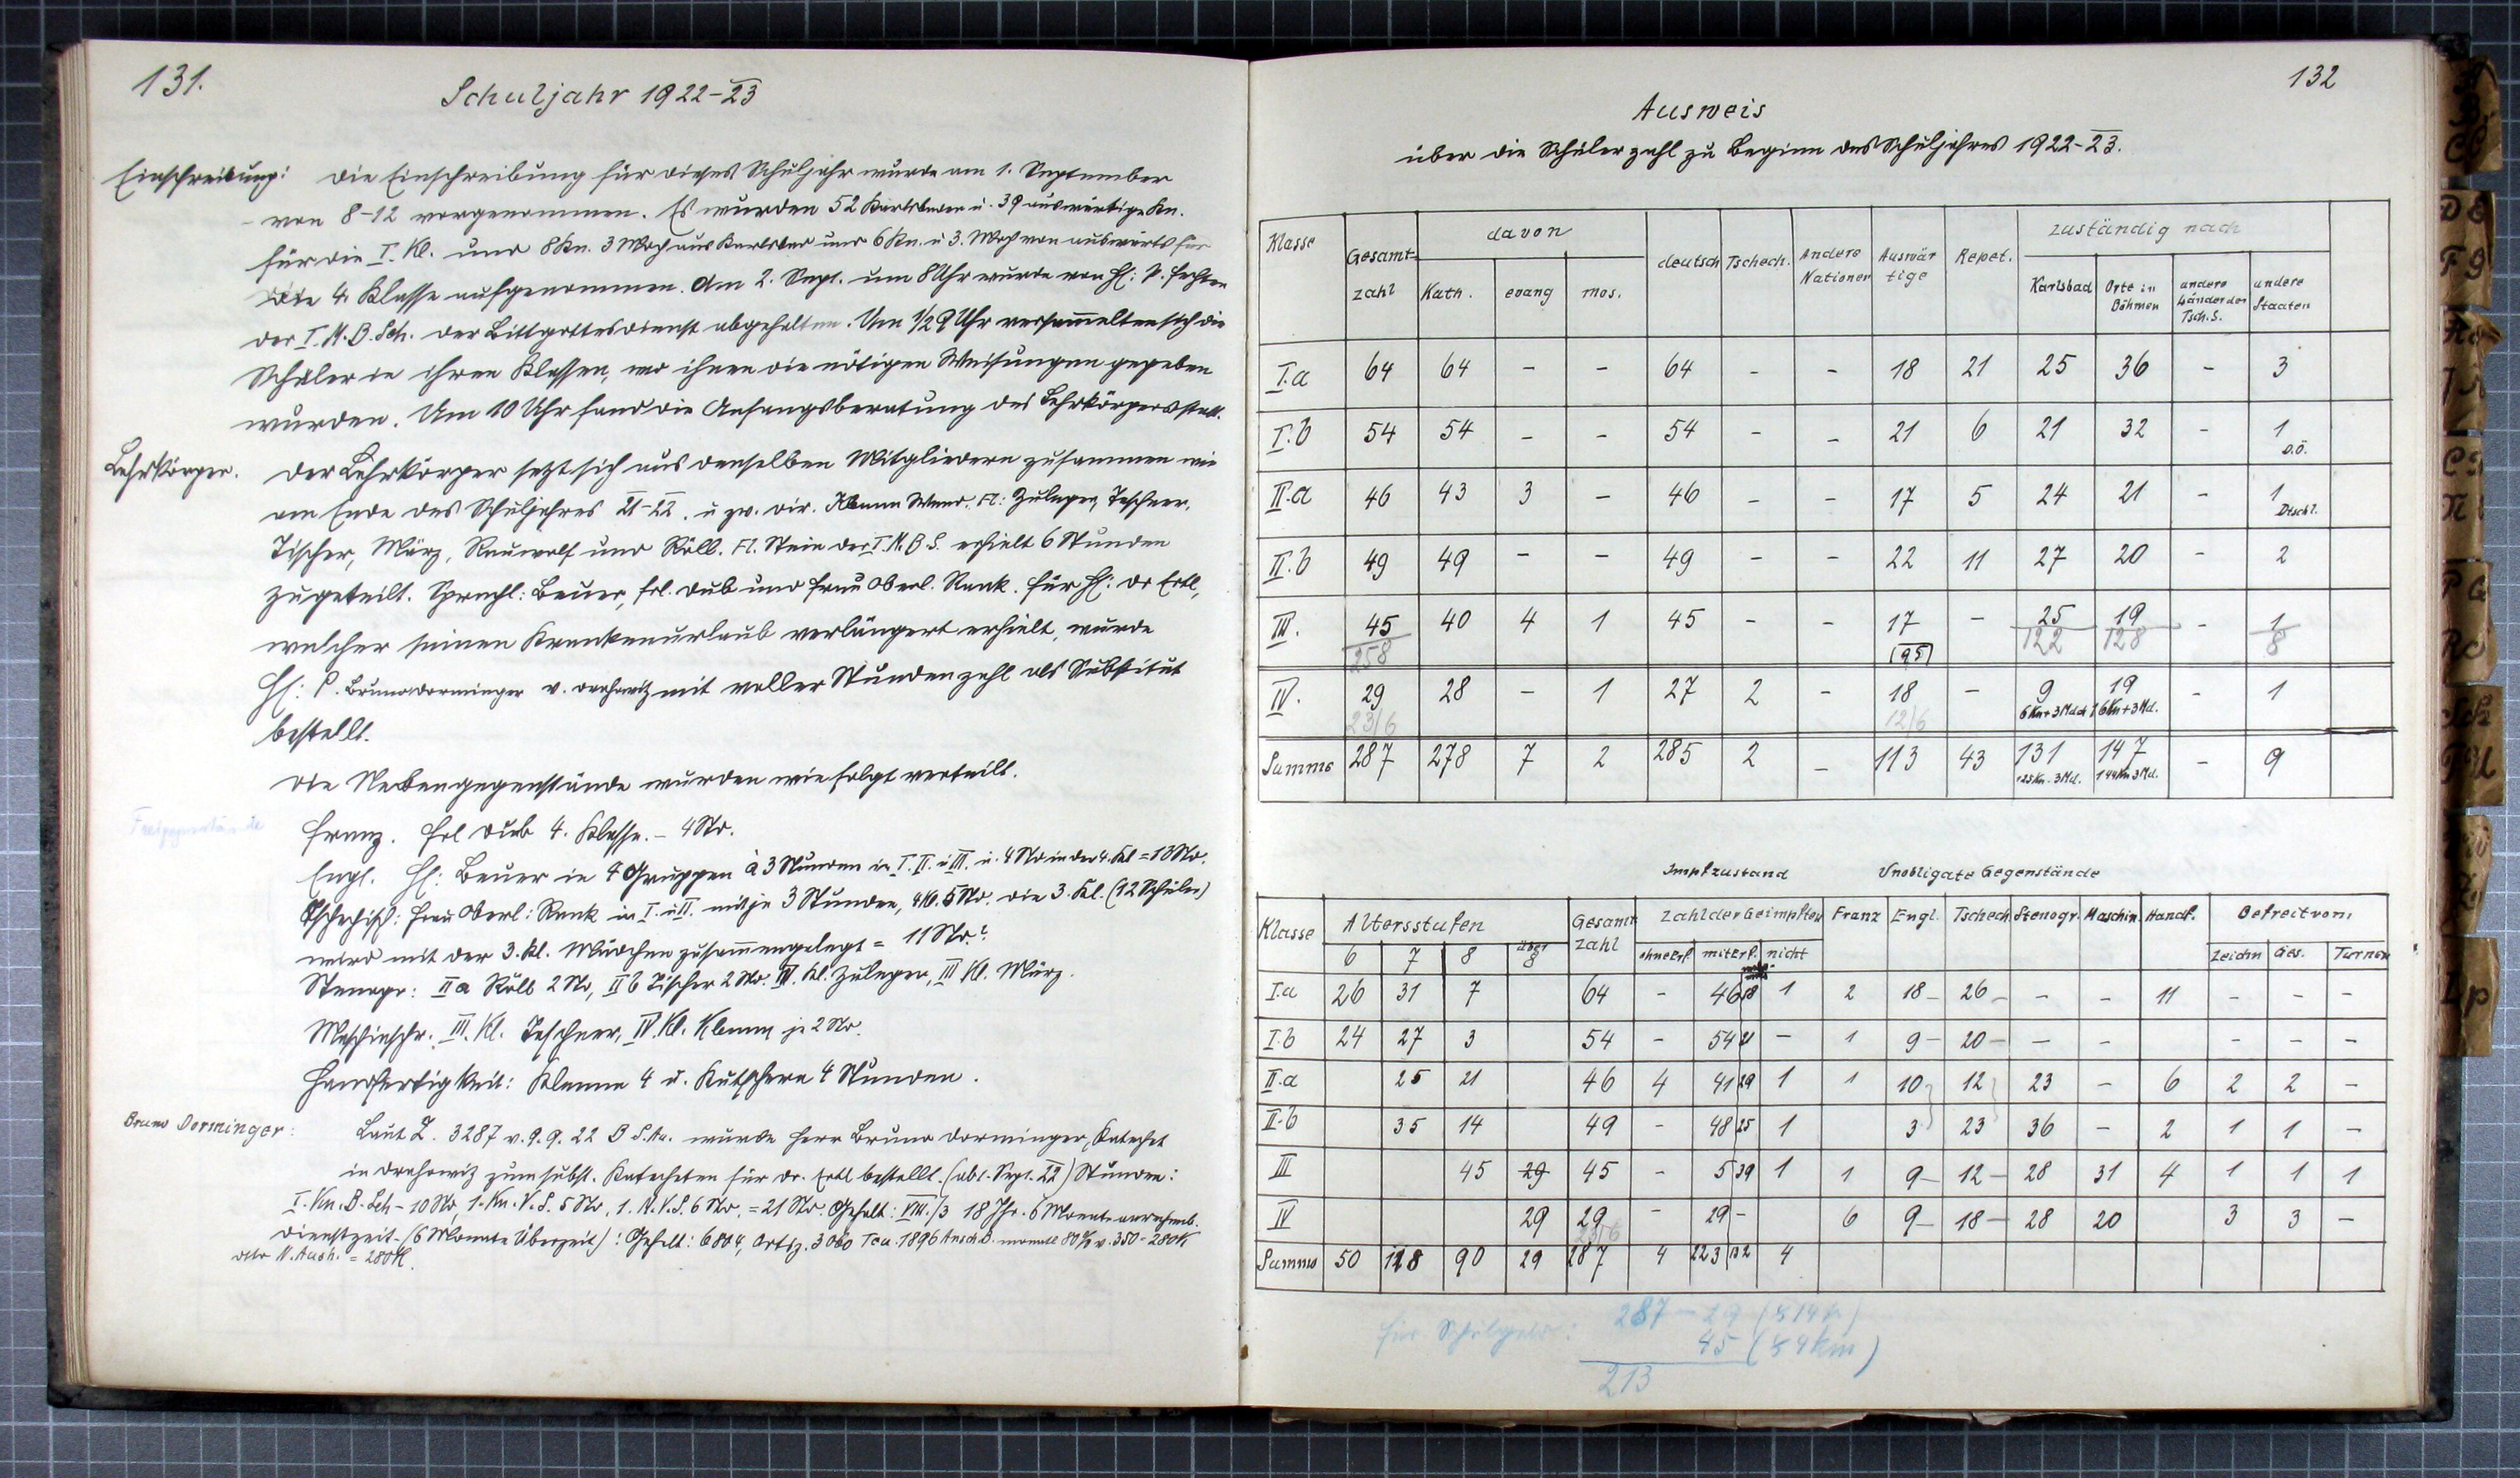 131.
Schuljahr 1922-23
Einschreibung: Die Einschreibung für dieses Schuljahr wurde am 1. September
von 8-12 vorgenommen. Es wurden 52 Karlsbader u. 39 auswärtige Kn.
für die I. Kl. und 8 Kn. 3 Mdch aus Karlsbad und 6 Kn. u 3. Mdch von auswärts für
die 4. Klasse aufgenommen. Am 2. Sept. um 8 Uhr wurde von H:
der I. K. B. Sch. der Bittgottesdienst abgehalten. Um 1/2 9 Uhr versam̄elten sich die
Schüler in ihren Klassen, wo ihnen die nötigen Weisungen gegeben
wurden. Um 10 Uhr fand die Anfangsberatung des Lehrkörpers statt.
Lehrkörper. Der Lehrkörper setzt sich aus denselben Mitgliedern zusammen wie
am Ende des Schuljahres 21-22. u zw. Dir. Zuleger, Teschner,
Tischer, März, Rauwolf und Köll. Fl. Stein der I. K. B. S. erhielt 6 Stunden
zugeteilt. Sprachl: Beuer, Frl. Dub und Frau Oberl. Rank. Für H: Dr Ertl,
welcher seinen Krankenurlaub verlängert erhielt, wurde
H: P. Bruno Dorminger v. Drahowitz mit voller Stundenzahl als Substitut
bestellt.
Die Nebengegenstände wurden wie folgt verteilt.
Freigegenstände
Franz. Frl Dub 4. Klasse. - 4 Std.
Engl. H: Beuer in 4 Gruppen à 3 Stunden in I. II. u III. u. 4 Std in der 4. Kl = 13 Std.
Tschechisch: Frau Oberl: Rank in I. u II. mit je 3 Stunden, 4 Kl. 5 Std. die 3. Kl. (12 Schüler)
wird mit der 3. Kl. Mädchen zusam̄engelegt = 11 Std.
Stenogr: II a Köll 2 Std, II b Tischer 2 Std. IV. Kl. Zuleger, III Kl. März.
Maschinschr. III. Kl. Teschner, IV. Kl. Klemm je 2 Std.
Handfertigkeit: Klemm 4 u. Kutschera 4 Stunden.
Bruno Dorminger: Laut Z. 3287 v. 9. 9. 22 B S. Au. wurde Herr Bruno Dorminger, Katechet
in Drahowitz zum subst. Katecheten für Dr. Ertl bestellt. (ab 1. Sept. 22) Stunden:
I. Kn. B. Sch - 10 Std, 1. Kn. V. S. 5 Std, 1. K. V. S. 6 Std. = 21 Std. Gehalt: VIII./3 18 Jhr. 6 Monate
Dienstzeit - (6 Monate Überzeit): Gehalt: 6804, Ortsz. 3060 Teu. 1896 Ansch. B. monatl 80% v. 350 - 280 K
N. Aush. = 280 K.
132
Ausweis
über die Schülerzahl zu Beginn des Schuljahres 1922-23.
Klasse Gesamt-zahl davon Kath. evang mos. deutsch Tschech. Andere Nationen Auswärtige Repet. zuständig nach Karlsbad Orte in Böhmen andere Länder der Tsch. S. andere Staaten
I.a 64 64 - - 64 - - 18 21 25 36 - 3
I.b 54 54 - - 54 - - 21 6 21 32 - 1 D.Ö.
II.a 46 43 3 - 46 - - 17 5 24 21 - 1 Dtschl.
II.b 49 49 - - 49 - - 22 11 27 20 - 2
III. 45 40 4 1 45 - - 17 - 25 19 - 1
258 95 122 128 8
IV. 29 28 - 1 27 2 - 18 - 9 19 - 1
23/6 12/6 6 Kn + 3 Mdch 16 Kn + 3 Md.
Summe 287 278 7 2 285 2 - 113 43 131 147 - 9
125 Kn. 3 Md. 144 Kn 3 Md.
Impfzustand Unobligate Gegenstände
Klasse Altersstufen Gesamt zahl Zahl der Geimpften Franz Engl. Tschech. Stenogr. Maschin. Handf. Befreit vom
6 7 8 über 8 ohne Erf. mit Erf. nicht Zeichn Ges. Turnen
I.a 26 31 7 64 - 46 18 1 2 18 - 26 - - - 11 - - -
I.b 24 27 3 54 - 54 21 - 1 9 - 20 - - - - - -
II.a 25 21 46 4 41 29 1 1 10 12 23 - 6 2 2 -
II.b 35 14 49 - 48 25 1 3 23 36 - 2 1 1 -
III 45 29 45 - 5 39 1 1 9 - 12 - 28 31 4 1 1 1
IV 29 29 - 29 - 6 9 - 18 - 28 20 3 3 -
23/6
Summe 50 118 90 29 287 4 223 132 4
für Schulgeld: 287 - 29 (§ 14)
45 (§ 4 km)
213